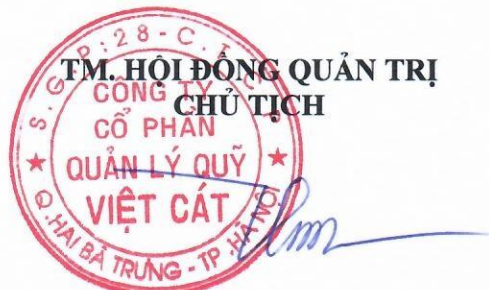 TM. HỘI ĐỒNG QUẢN TRỊ
CHỦ TỊCH
CÔNG TY
CỔ PHẦN
QUẢN LÝ QUỸ
VIỆT CÁT
Q.HAI BÀ TRƯNG - TP.HÀ NỘI